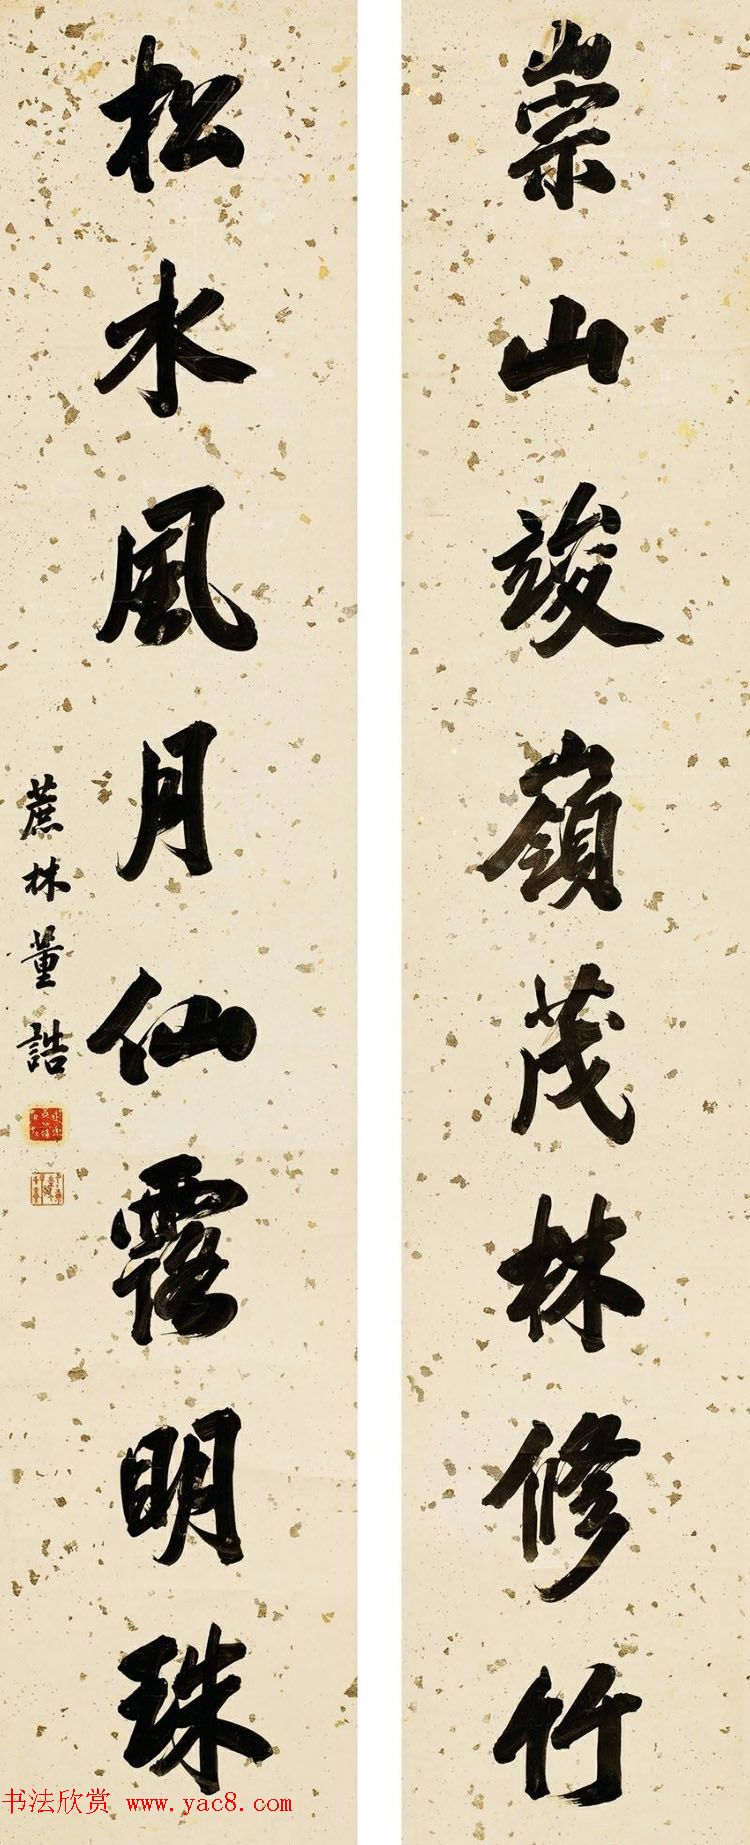 崇山竣嶺茂林修竹
松水風月仙露明珠
蔗林董誥
书法欣赏 www.yac8.com